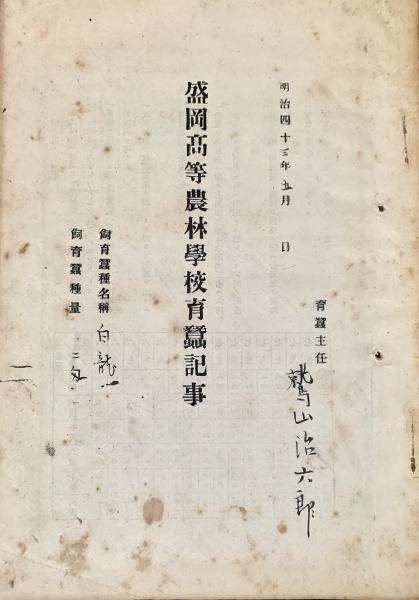 明治四十三年五月　日
育蠶主任
鷲山治六郎
盛岡高等農林學校育蠶記事
飼育蠶種名稱　白龍
飼育蠶種量